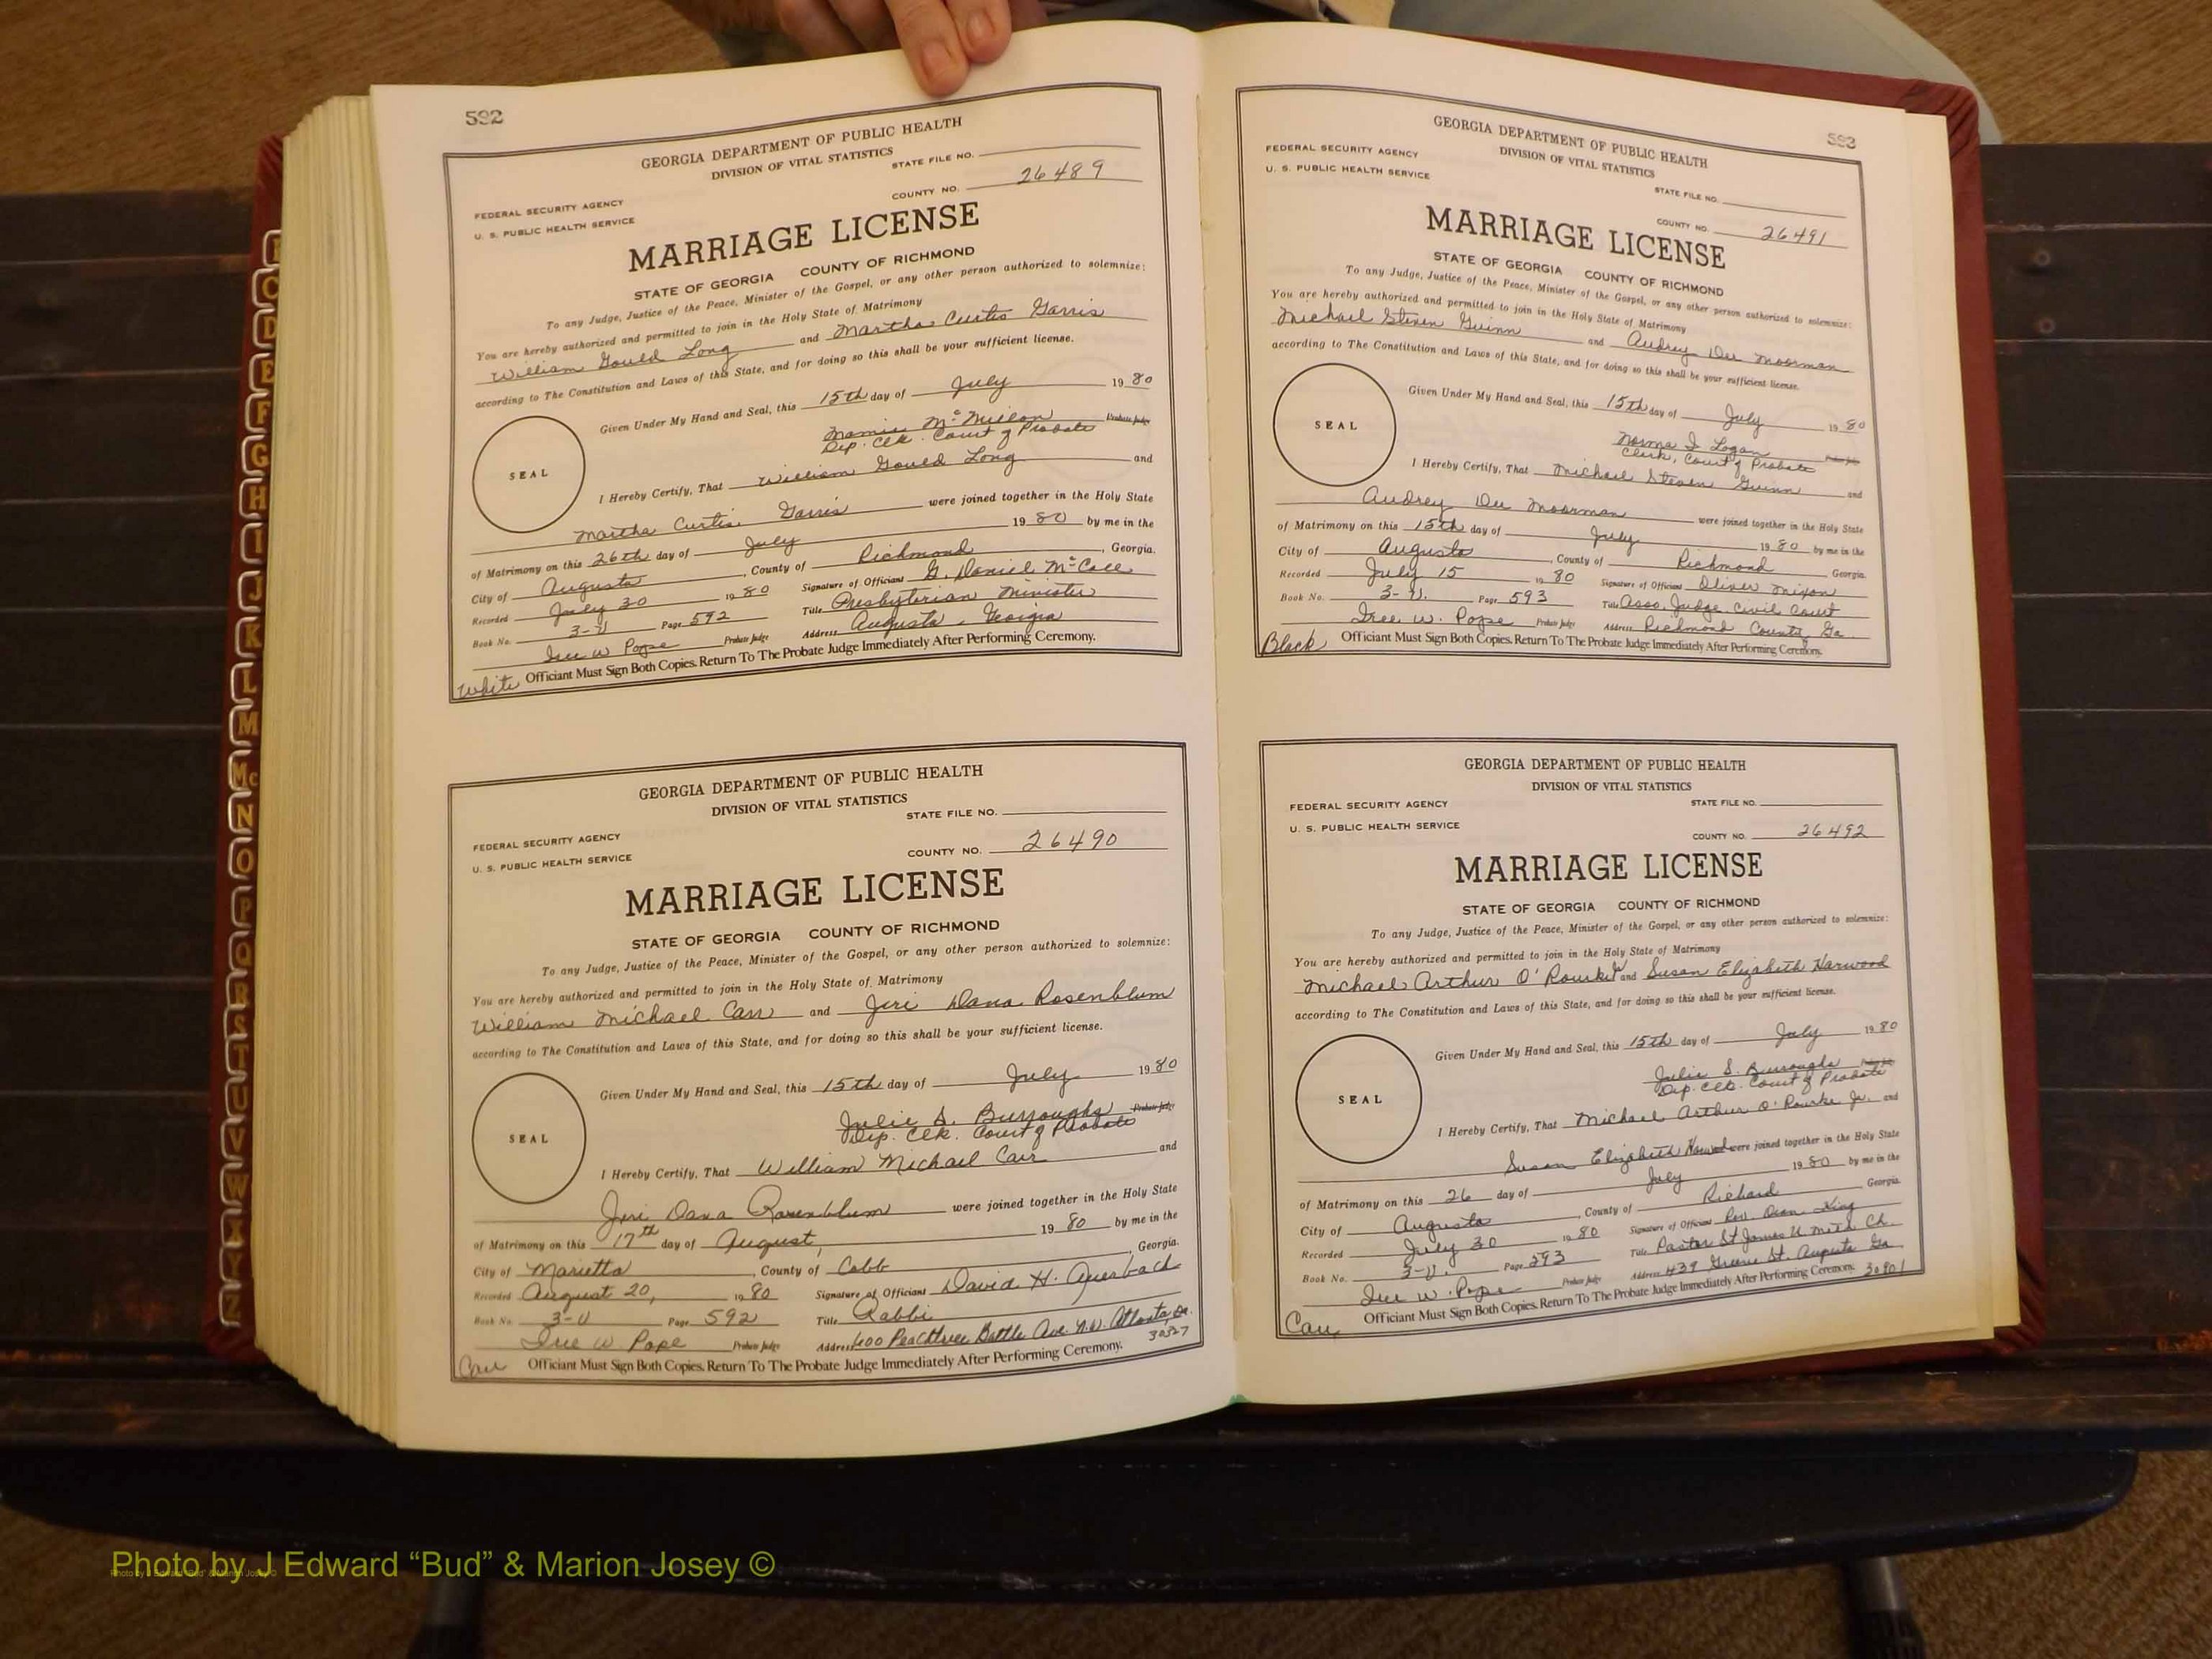 592
GEORGIA DEPARTMENT OF PUBLIC HEALTH
DIVISION OF VITAL STATISTICS
STATE FILE NO.
COUNTY NO. 26489
FEDERAL SECURITY AGENCY
U. S. PUBLIC HEALTH SERVICE
MARRIAGE LICENSE
STATE OF GEORGIA COUNTY OF RICHMOND
To any Judge, Justice of the Peace, Minister of the Gospel, or any other person authorized to solemnize:
You are hereby authorized and permitted to join in the Holy State of Matrimony
William Gould Long and Martha Curtis Garris
according to The Constitution and Laws of this State, and for doing so this shall be your sufficient license.
Given Under My Hand and Seal, this 15th day of July 1980
Mamie McMillan Probate Judge
Dep. Clk. Court of Probate
SEAL
I Hereby Certify, That William Gould Long and
Martha Curtis Garris were joined together in the Holy State
of Matrimony on this 26th day of July 1980 by me in the
City of Augusta, County of Richmond, Georgia.
Recorded July 30 1980 Signature of Officiant G. Daniel McCall
Book No. 3-U Page 592 Title Presbyterian Minister
Iree W Pope Probate Judge Address Augusta, Georgia
White Officiant Must Sign Both Copies. Return To The Probate Judge Immediately After Performing Ceremony.
GEORGIA DEPARTMENT OF PUBLIC HEALTH
DIVISION OF VITAL STATISTICS
STATE FILE NO.
FEDERAL SECURITY AGENCY
U. S. PUBLIC HEALTH SERVICE
COUNTY NO. 26490
MARRIAGE LICENSE
STATE OF GEORGIA COUNTY OF RICHMOND
To any Judge, Justice of the Peace, Minister of the Gospel, or any other person authorized to solemnize:
You are hereby authorized and permitted to join in the Holy State of Matrimony
William Michael Carr and Jeri Dana Rosenblum
according to The Constitution and Laws of this State, and for doing so this shall be your sufficient license.
Given Under My Hand and Seal, this 15th day of July 1980
Julie S. Burroughs Probate Judge
Dep. Clk. Court of Probate
SEAL
I Hereby Certify, That William Michael Carr and
Jeri Dana Rosenblum were joined together in the Holy State
of Matrimony on this 17th day of August, 1980 by me in the
City of Marietta, County of Cobb, Georgia.
Recorded August 20, 1980 Signature of Officiant David H. Auerbach
Book No. 3-U Page 592 Title Rabbi
Iree W Pope Probate Judge Address 400 Peachtree Battle Ave. N.W. Atlanta, Ga. 30327
Cau Officiant Must Sign Both Copies. Return To The Probate Judge Immediately After Performing Ceremony.
593
GEORGIA DEPARTMENT OF PUBLIC HEALTH
DIVISION OF VITAL STATISTICS
FEDERAL SECURITY AGENCY
U. S. PUBLIC HEALTH SERVICE
STATE FILE NO.
COUNTY NO. 26491
MARRIAGE LICENSE
STATE OF GEORGIA COUNTY OF RICHMOND
To any Judge, Justice of the Peace, Minister of the Gospel, or any other person authorized to solemnize:
You are hereby authorized and permitted to join in the Holy State of Matrimony
Michael Steven Guinn and Audrey Dee Moorman
according to The Constitution and Laws of this State, and for doing so this shall be your sufficient license.
Given Under My Hand and Seal, this 15th day of July 1980
Norma I Logan Probate Judge
Clerk, Court of Probate
SEAL
I Hereby Certify, That Michael Steven Guinn and
Audrey Dee Moorman were joined together in the Holy State
of Matrimony on this 15th day of July 1980 by me in the
City of Augusta, County of Richmond Georgia.
Recorded July 15 1980 Signature of Officiant Oliver Mixon
Book No. 3-U. Page 593 Title Asso. Judge, Civil Court
Iree W. Pope Probate Judge Address Richmond County, Ga.
Black Officiant Must Sign Both Copies. Return To The Probate Judge Immediately After Performing Ceremony.
GEORGIA DEPARTMENT OF PUBLIC HEALTH
DIVISION OF VITAL STATISTICS
FEDERAL SECURITY AGENCY STATE FILE NO.
U. S. PUBLIC HEALTH SERVICE
COUNTY NO. 26492
MARRIAGE LICENSE
STATE OF GEORGIA COUNTY OF RICHMOND
To any Judge, Justice of the Peace, Minister of the Gospel, or any other person authorized to solemnize:
You are hereby authorized and permitted to join in the Holy State of Matrimony
Michael Arthur O'Rourke Jr and Susan Elizabeth Harwood
according to The Constitution and Laws of this State, and for doing so this shall be your sufficient license.
Given Under My Hand and Seal, this 15th day of July 1980
Julie S. Burroughs Probate Judge
Dep. Clk. Court of Probate
SEAL
I Hereby Certify, That Michael Arthur O'Rourke Jr. and
Susan Elizabeth Harwood were joined together in the Holy State
of Matrimony on this 26 day of July 1980 by me in the
City of Augusta, County of Richard Georgia.
Recorded July 30 1980 Signature of Officiant Rev. Dean King
Book No. 3-U. Page 593 Title Pastor St James U. Meth Ch.
Iree W. Pope Probate Judge Address 439 Greene St. Augusta Ga 30901
Cau Officiant Must Sign Both Copies. Return To The Probate Judge Immediately After Performing Ceremony.
C
D
E
F
G
H
I
J
K
L
M
Mc
N
O
P
Q
R
S
T
U
V
W
X
Y
Z
Photo by J Edward “Bud” & Marion Josey ©
Photo by J Edward “Bud” & Marion Josey ©